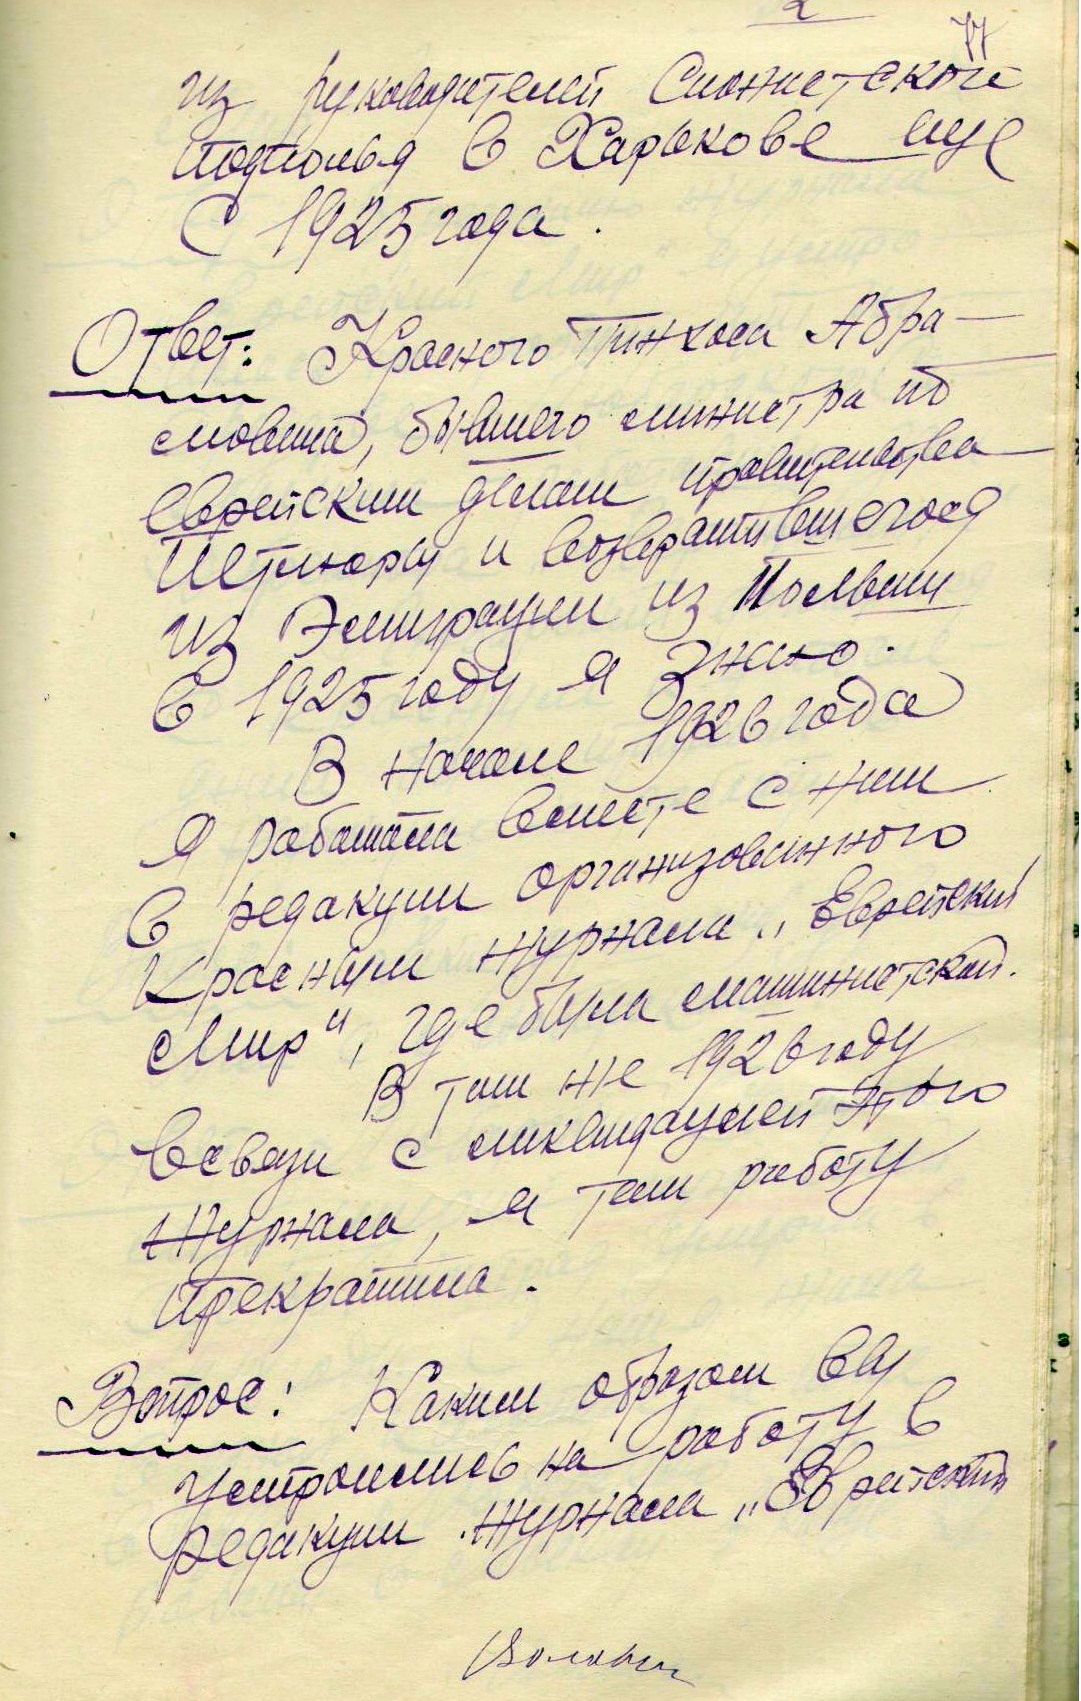 2
77
из руководителей Сионистской
подполья в Харькове еще
с 1925 года.
Ответ: Красного Пинхоса Абра-
мовича, бывшего министра по
еврейским делам правительства
Петлюры и возвратившегося
из Эмиграции из Польши
в 1925 году я знаю.
В начале 1926 года
я работала вместе с ним
в редакции организованного
Красным журнала „Еврейский
Мир", где была машинисткой.
В том же 1926 году
всвязи с ликвидацией этого
журнала, я там работу
прекратила.
Вопрос: Каким образом вы
устроились на работу в
редакции журнала „Еврейский